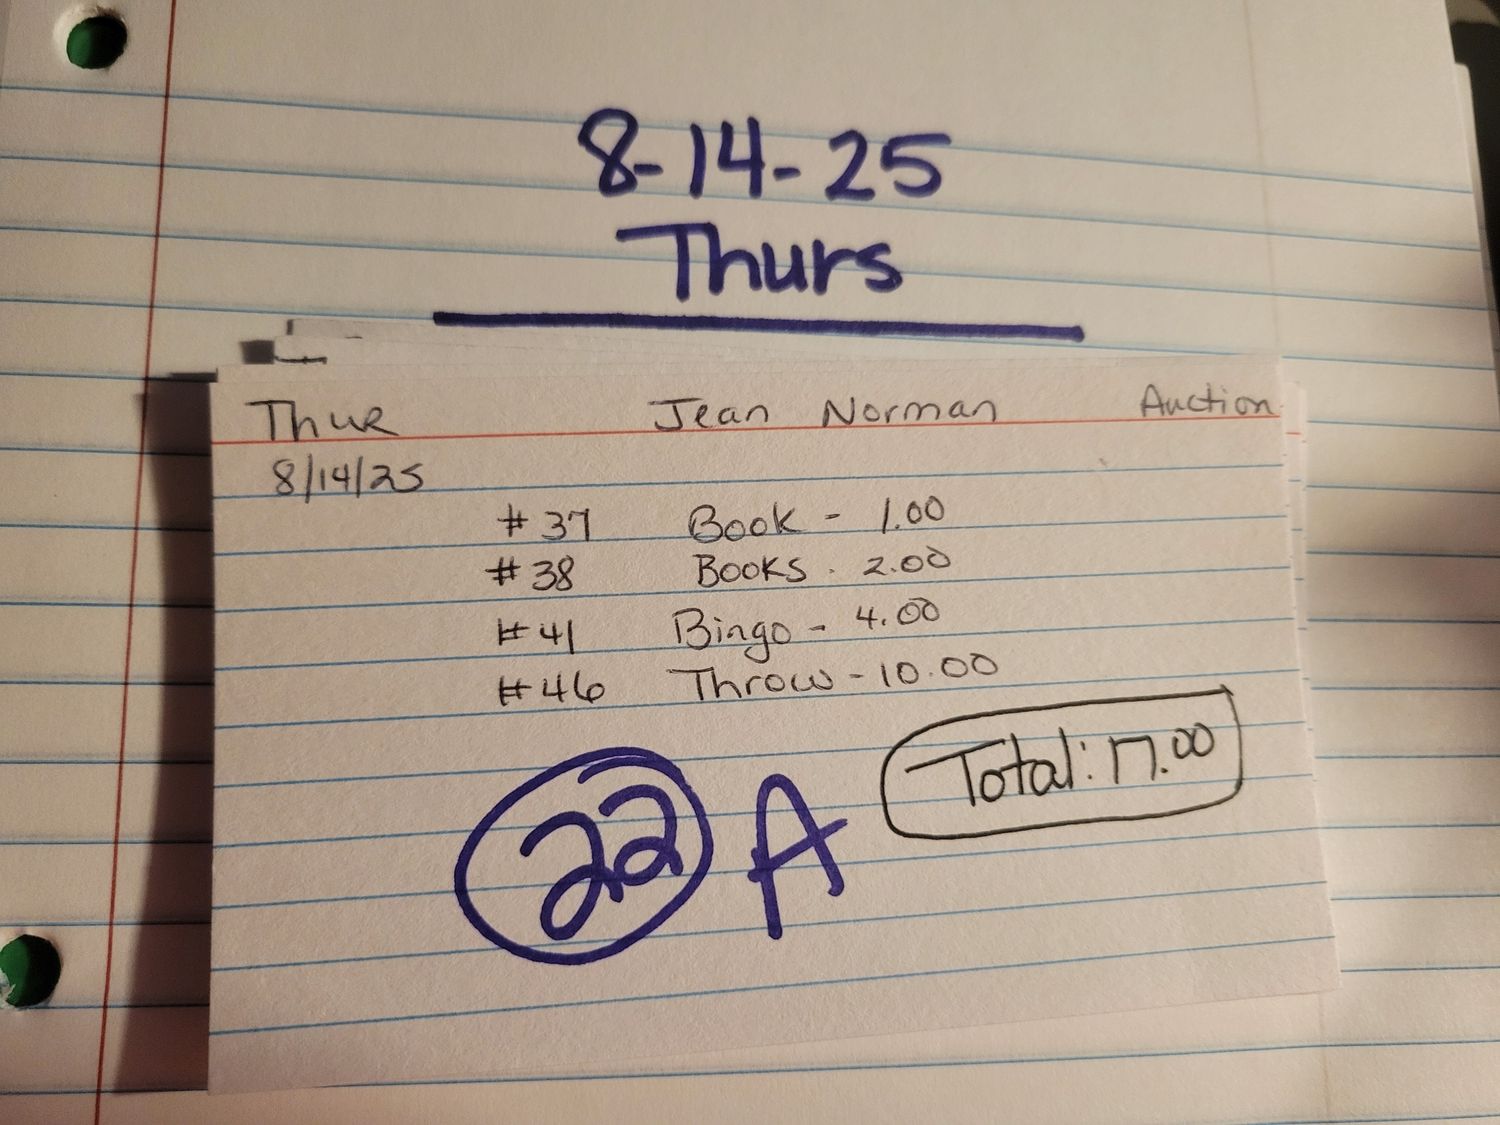 8-14-25
Thurs
Thur Jean Norman Auction
8/14/25
#37 Book - 1.00
#38 Books - 2.00
#41 Bingo - 4.00
#46 Throw - 10.00
Total: 17.00
22 A